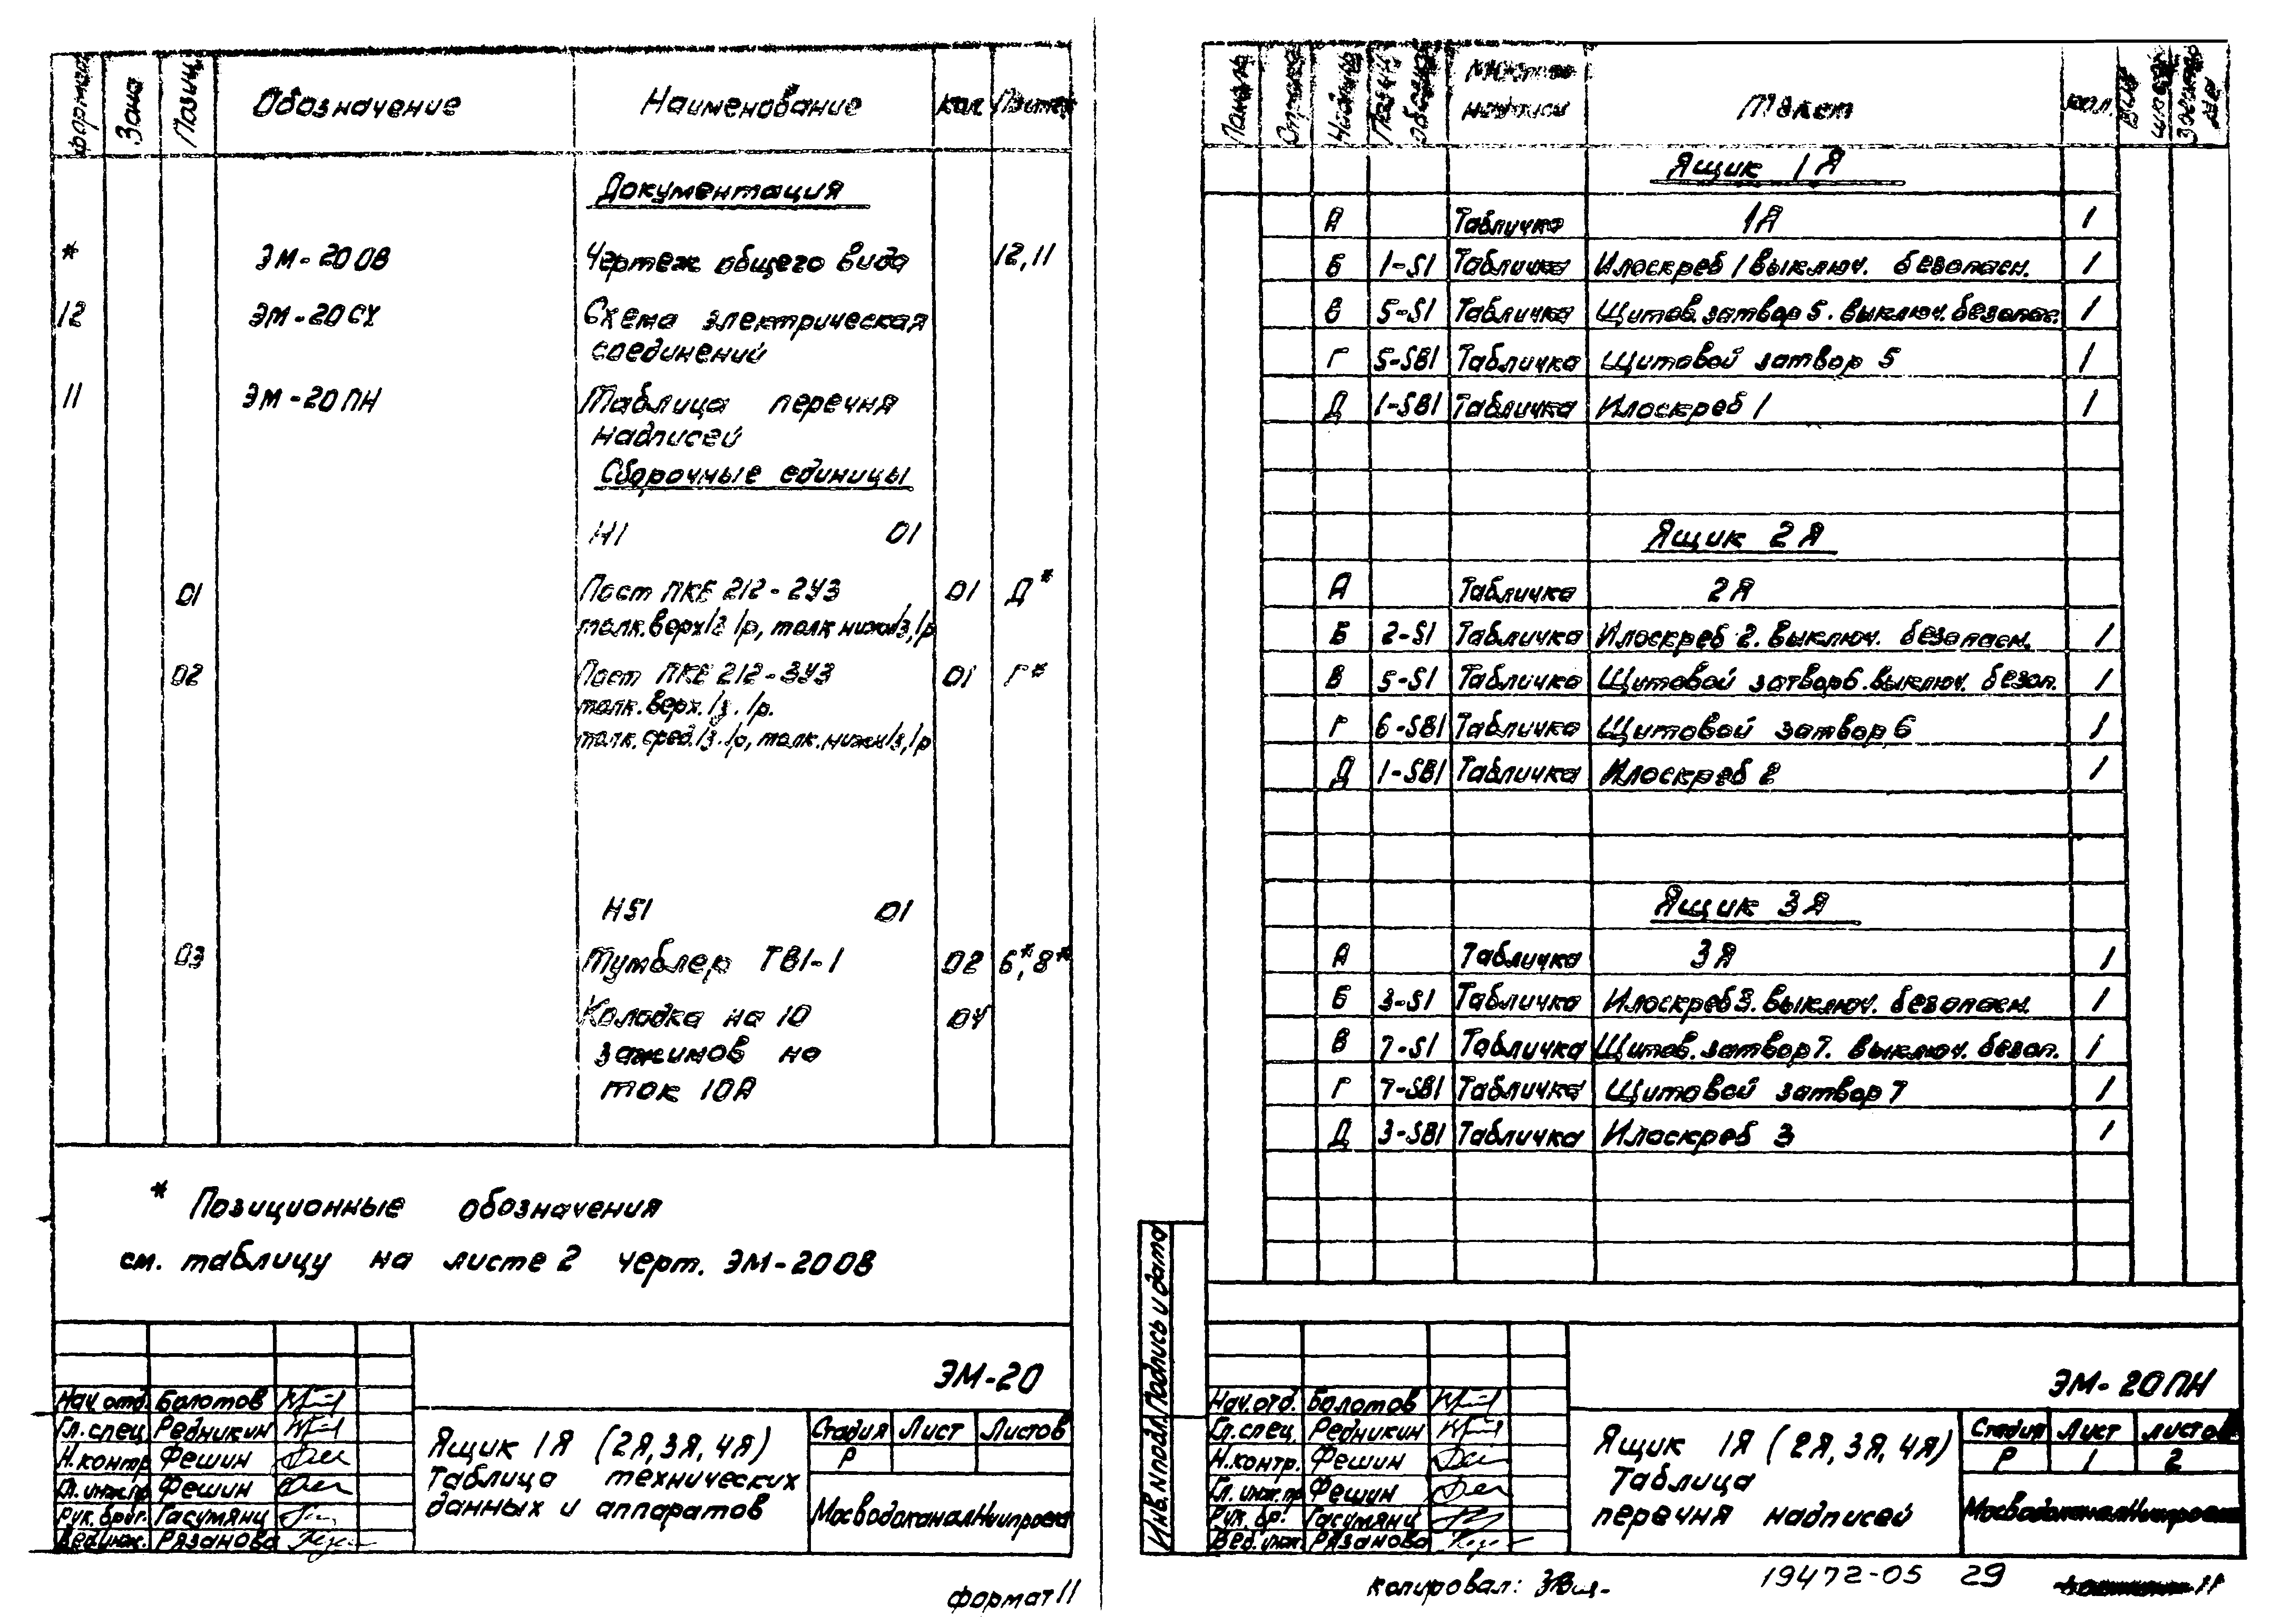 формат Зона Позиц. Обозначение Наименование кол Примеч
Документация
* ЭМ-20 ОВ Чертеж общего вида 12,11
12 ЭМ-20 СХ Схема электрическая
соединений
11 ЭМ-20 ПН Таблица перечня
надписей
Сборочные единицы
Н1 01
01 Пост ПКЕ 212-2У3 01 Д*
толк.верх 1з 1р, толк нижн 1з,1р
02 Пост ПКЕ 212-3У3 01 Г*
толк.верх.1з.1р.
толк.сред.1з.1р, толк.нижн 1з,1р
НS1 01
03 Тумблер ТВ1-1 02 Б*,В*
Колодка на 10 04
зажимов на
ток 10А
* Позиционные обозначения
см. таблицу на листе 2 черт. ЭМ-20 ОВ
ЭМ-20
Нач.отд. Болотов
Гл.спец Редникин
Н.контр Фешин
Гл.инж.пр Фешин
Рук.бриг. Гасумянц
Вед.инж. Рязанова
Ящик 1Я (2Я,3Я,4Я)
Таблица технических
данных и аппаратов
Стадия Лист Листов
Р
МосводоканалНиипроект
формат 11
Панель Строка Надпись Позиц. обознач Место надписи Текст кол.
Ящик 1Я
А Табличка 1Я 1
Б 1-S1 Табличка Илоскреб 1 выключ. безопасн. 1
В 5-S1 Табличка Щитов.затвор 5. выключ.безопас. 1
Г 5-SB1 Табличка Щитовой затвор 5 1
Д 1-SB1 Табличка Илоскреб 1 1
Ящик 2Я
А Табличка 2Я
Б 2-S1 Табличка Илоскреб 2. выключ. безопасн. 1
В 5-S1 Табличка Щитовой затвор 6.выключ. безоп. 1
Г 6-SB1 Табличка Щитовой затвор 6 1
Д 1-SB1 Табличка Илоскреб 2 1
Ящик 3Я
А Табличка 3Я 1
Б 3-S1 Табличка Илоскреб 3. выключ. безопасн. 1
В 7-S1 Табличка Щитов.затвор 7. выключ. безоп. 1
Г 7-SB1 Табличка Щитовой затвор 7 1
Д 3-SB1 Табличка Илоскреб 3 1
Инв.N подл. Подпись и дата
ЭМ-20 ПН
Нач.отд. Болотов
Гл.спец. Редникин
Н.контр. Фешин
Гл.инж.пр Фешин
Рук.бр. Гасумянц
Вед.инж. Рязанова
Ящик 1Я (2Я,3Я,4Я)
Таблица
перечня надписей
Стадия Лист Листов
Р 1 2
МосводоканалНиипроект
копировал:
19472-05 29
11